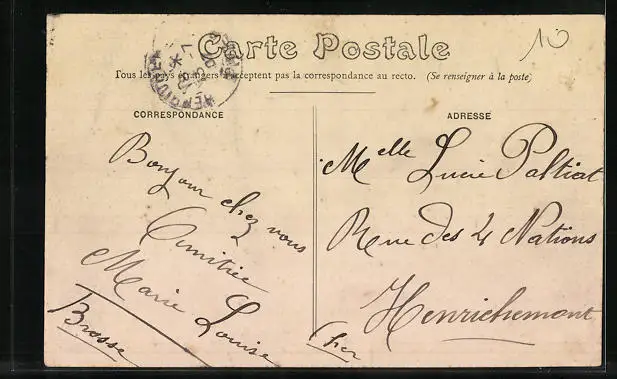 10
Carte Postale
Tous les pays étrangers n'acceptent pas la correspondance au recto. (Se renseigner à la poste)
CORRESPONDANCE
Bonjour chez vous
Amitiée
Marie Louise
Brosse
ADRESSE
Melle Lucie Paltiat
Rue des 4 Nations
Henrichemont
Cher